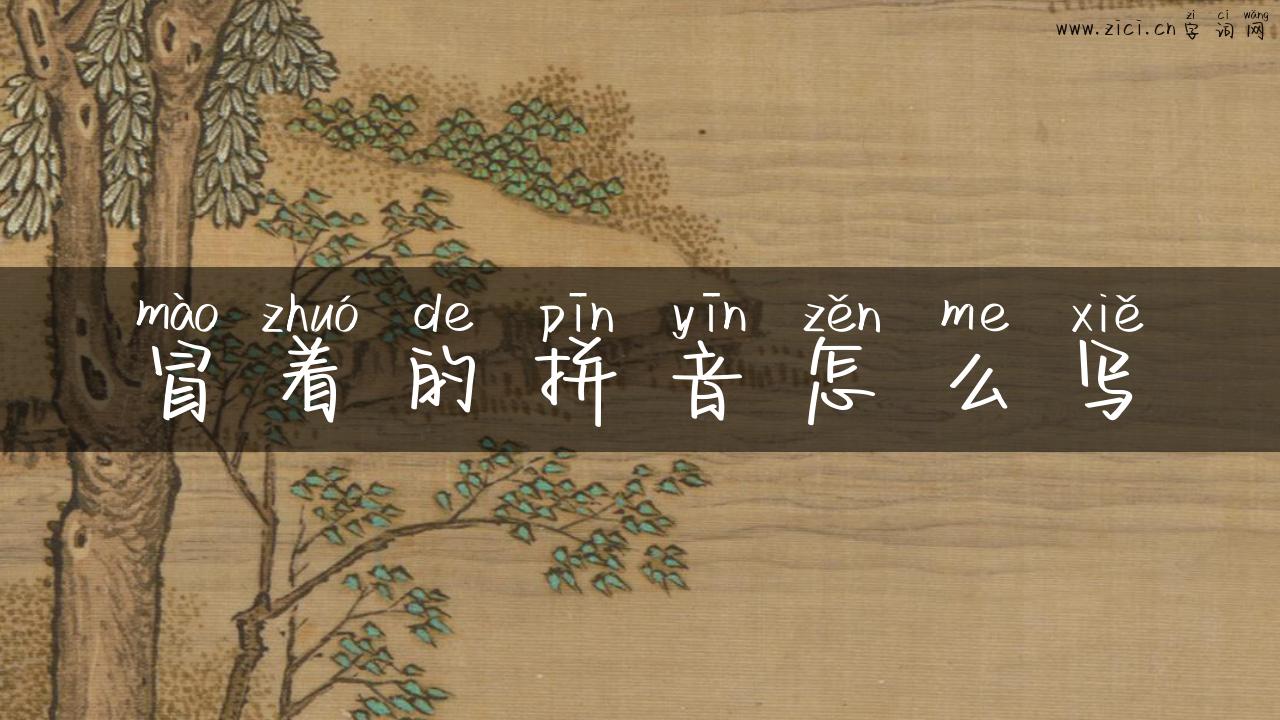 zì cí wǎng
www.zici.cn 字词网
mào zhuó de pīn yīn zěn me xiě
冒着的拼音怎么写